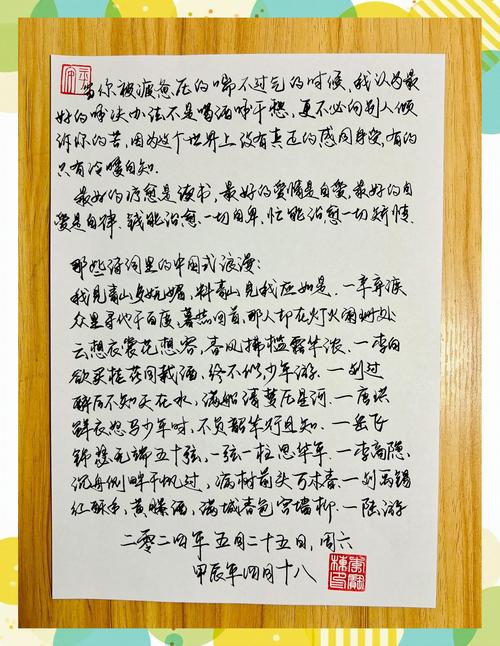 当你被疲惫压的喘不过气的时候,我认为最
好的解决办法不是喝酒干想,更不必向别人倾
诉你的苦,因为这个世界上没有真正的感同身受,有的
只有冷暖自知.
最好的疗愈是读书,最好的爱情是自爱,最好的自
爱是自律.钱能治愈一切自卑,忙能治愈一切矫情.
那些诗词里的中国式浪漫:
我见青山多妩媚,料青山见我应如是.—辛弃疾
众里寻他千百度,蓦然回首,那人却在灯火阑珊处
云想衣裳花想容,春风拂槛露华浓.—李白
欲买桂花同载酒,终不似,少年游.—刘过
醉后不知天在水,满船清梦压星河.—唐珙
鲜衣怒马少年时,不负韶华行且知.—岳飞
锦瑟无端五十弦,一弦一柱思华年.—李商隐
沉舟侧畔千帆过,病树前头万木春.—刘禹锡
红酥手,黄縢酒,满城春色宫墙柳.—陆游
二零二四年五月二十五日,周六
甲辰年四月十八